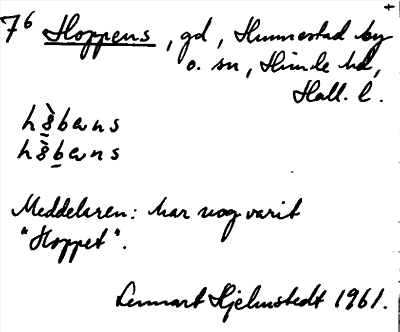 7⁶ Hoppens, gd, Hunnestad by
o. sn, Himle hd,
Hall. l.
Meddelaren: har nog varit
"Hoppet".
Lennart Hjelmstedt 1961.